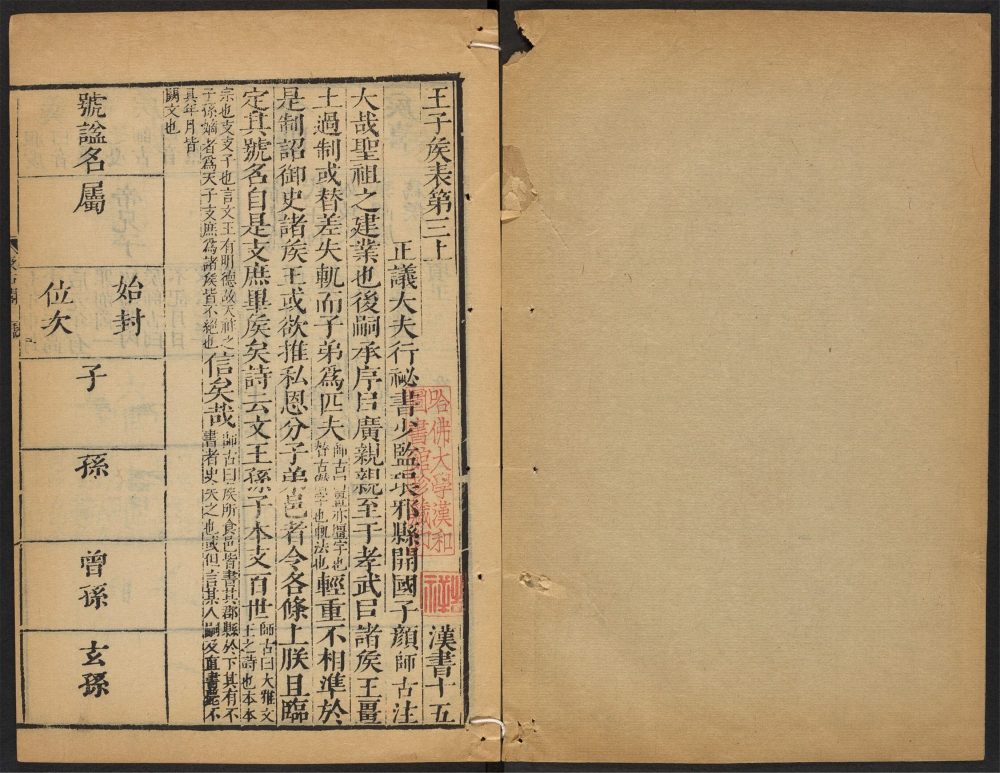 王子矦表第三上 漢書十五
正議大夫行祕書少監琅邪縣開國子顔師古注
大哉聖祖之建業也後嗣承序㠯廣親親至于孝武㠯諸矦王畺
土過制或替差失軌而子弟爲匹夫師古曰畺亦疆字也
軌法也輕重不相準於
是制詔御史諸矦王或欲推私恩分子弟邑者令各條上朕且臨
定其號名自是支庶畢矦矣詩云文王孫子本支百世師古曰大雅文
王之詩也本本
宗也支支子也言文王有明德故天祚之
子孫嫡者爲天子支庶爲諸矦皆不絕也信矣哉師古曰矦所食邑皆書其郡縣於下其有不
書者史失之也或但言某人嗣及直書薨不
具年月皆
闕文也
號諡名屬
始封
位次
子
孫
曾孫
玄孫
哈佛大學漢和
圖書館珍藏印